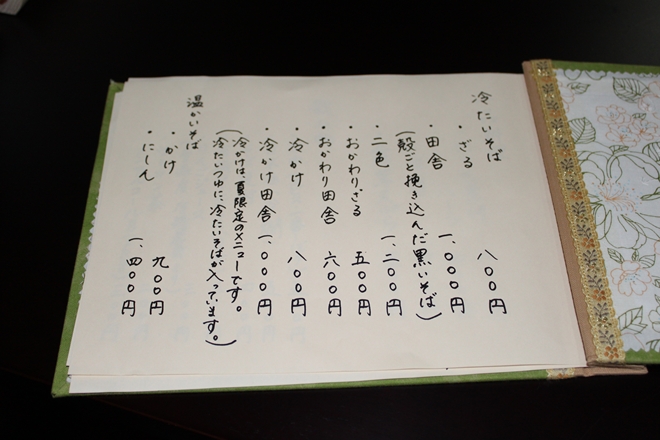 冷たいそば
・ざる 八〇〇円
・田舎 一、〇〇〇円
(殻ごと挽き込んだ黒いそば)
・二色 一、二〇〇円
・おかわりざる 五〇〇円
・おかわり田舎 六〇〇円
・冷かけ 八〇〇円
・冷かけ田舎 一、〇〇〇円
(冷かけは、夏限定のメニューです。
冷たいつゆに、冷たいそばが入っています。)
温かいそば
・かけ 九〇〇円
・にしん 一、四〇〇円